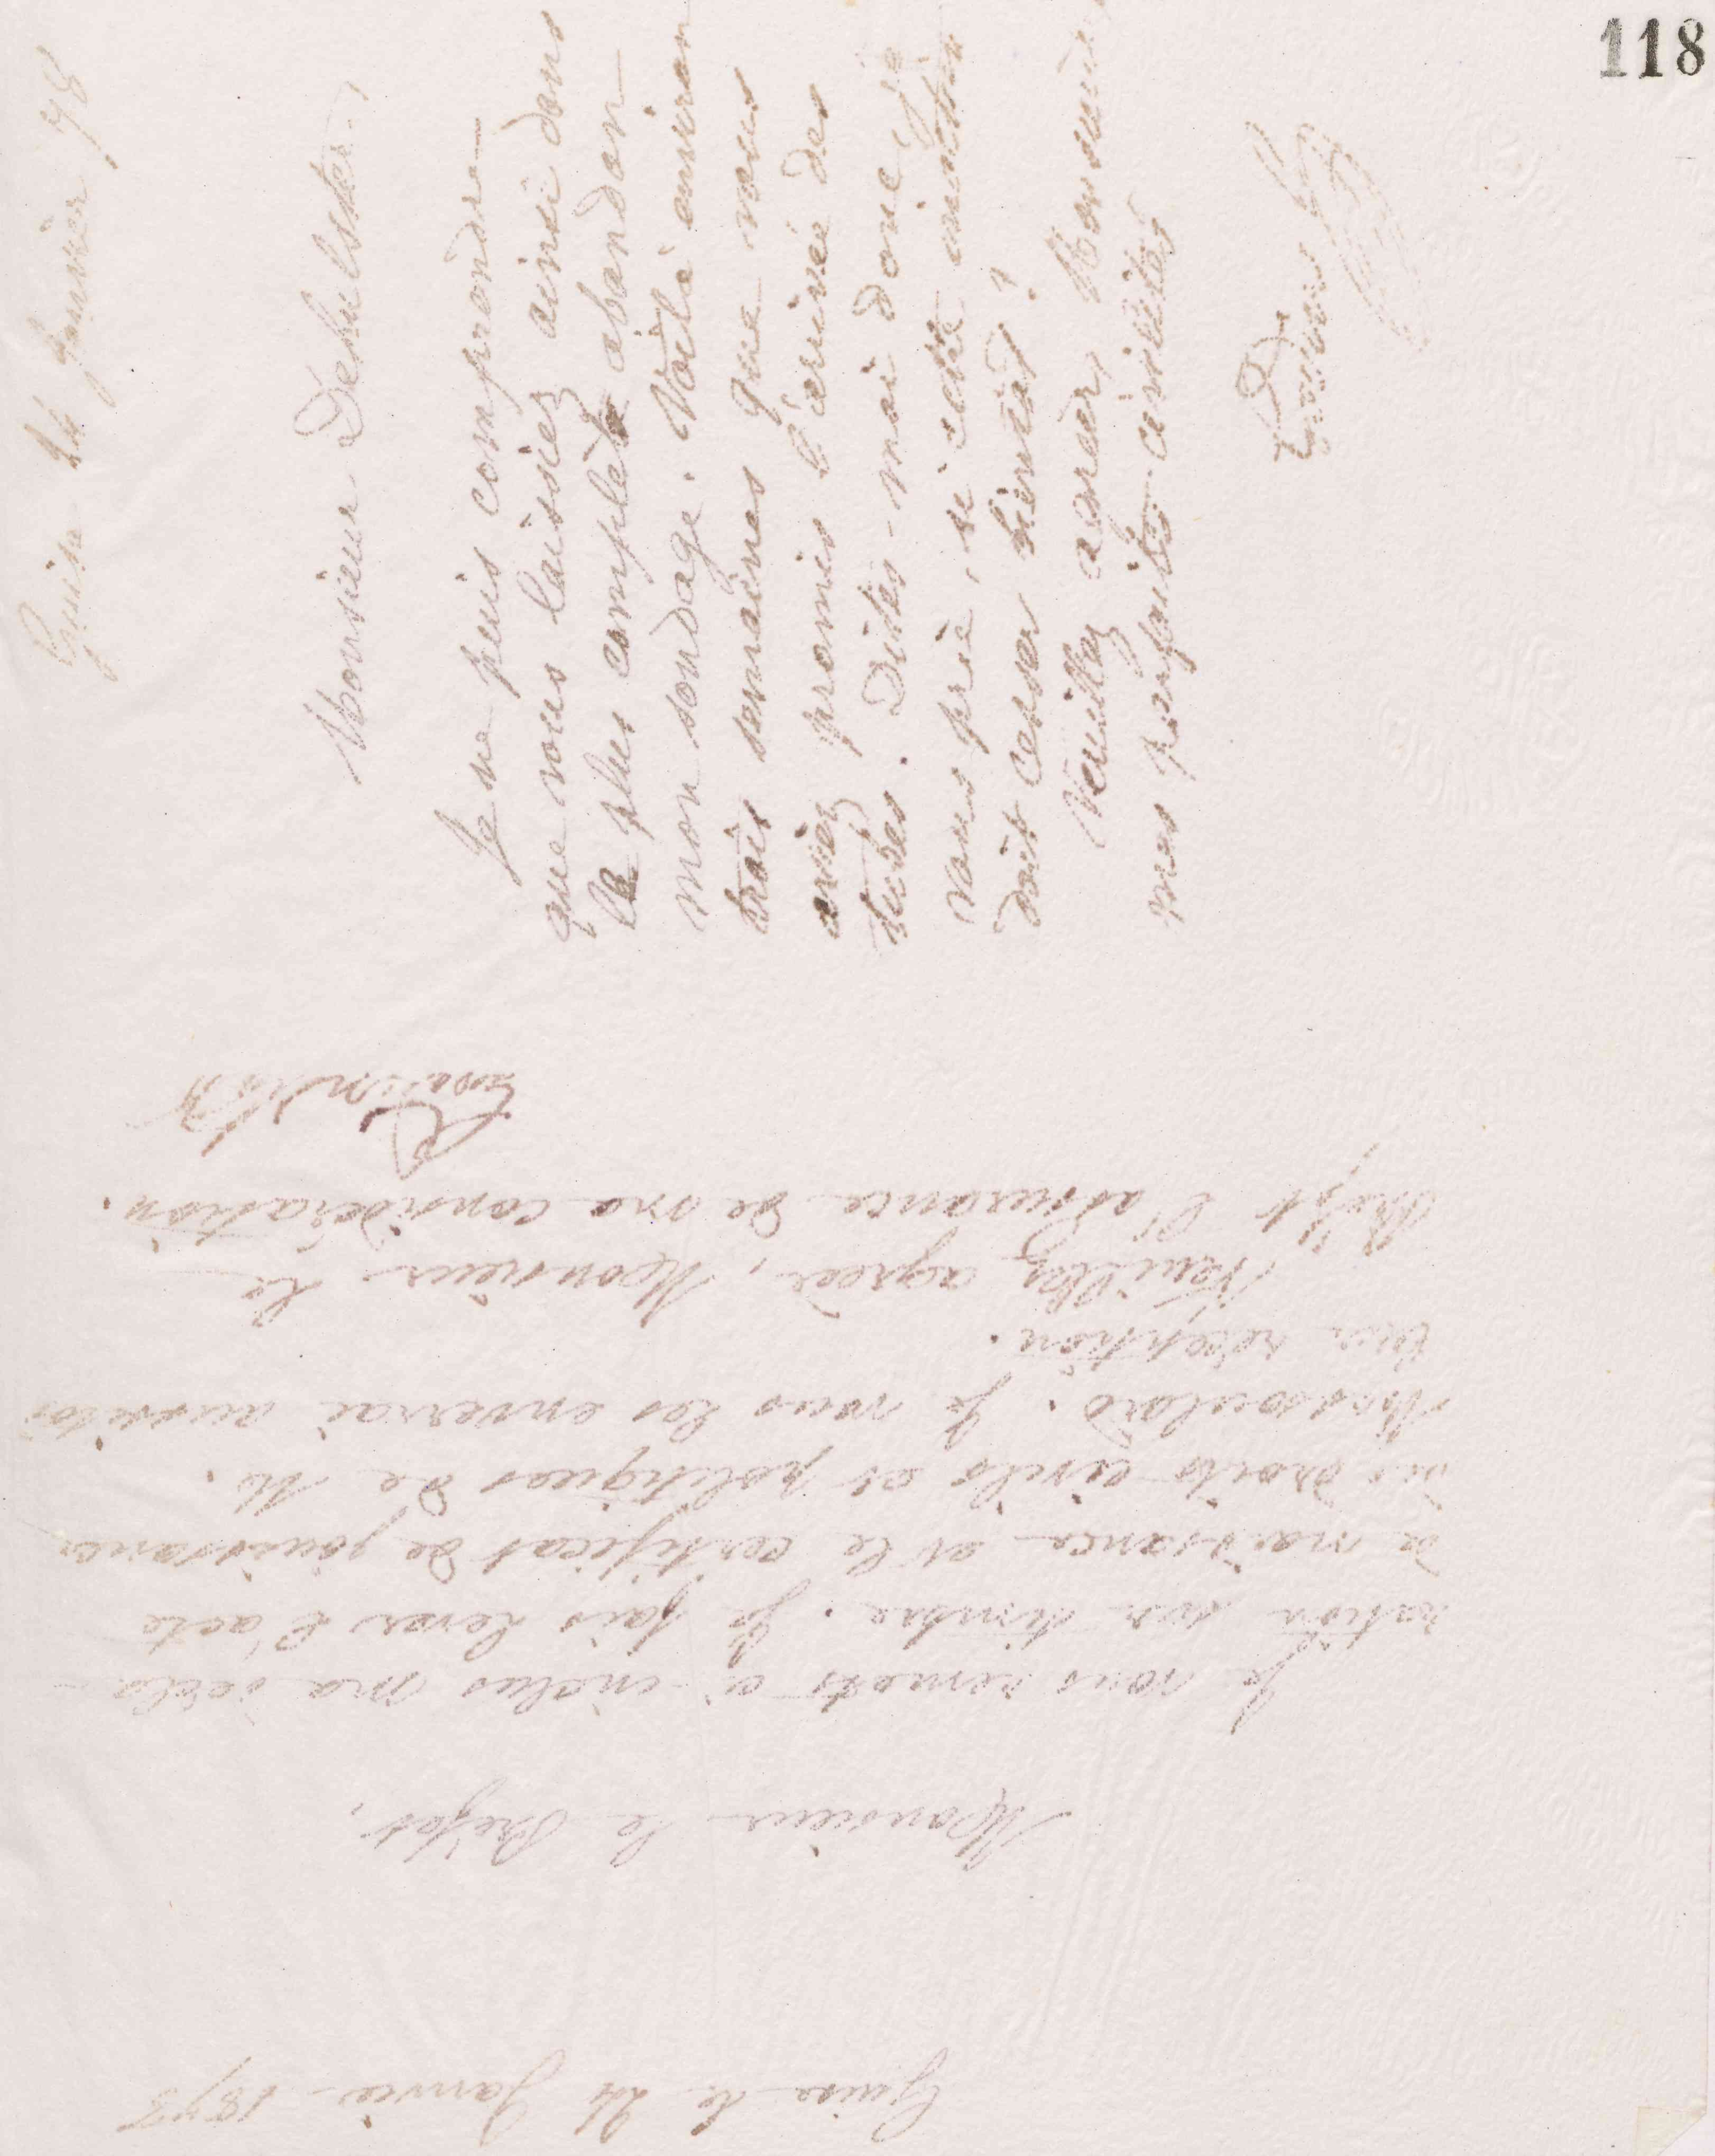 118
Guise 24 Janvier 78
Monsieur Dehulster,
Je ne puis comprendre
que vous laissiez ainsi dans
le plus complet abandon
mon sondage. Voilà environ
trois semaines que vous
aviez promis l'arrivée des
tubes. Dites-moi donc, je
vous prie, si cette
doit cesser bientôt?
Veuillez agréer, Monsieur,
mes parfaites civilités
Godin
Guise le 24 Janvier 1878
Monsieur le Préfet,
Je vous remets ci-inclus ma décla-
ration sur timbre. Je fais lever l'acte
de naissance et le certificat de jouissance
des droits civils et politiques de M.
Massoulard. Je vous les enverrai aussitôt
leur réception.
Veuillez agréer, Monsieur le
Préfet l'assurance de ma considération.